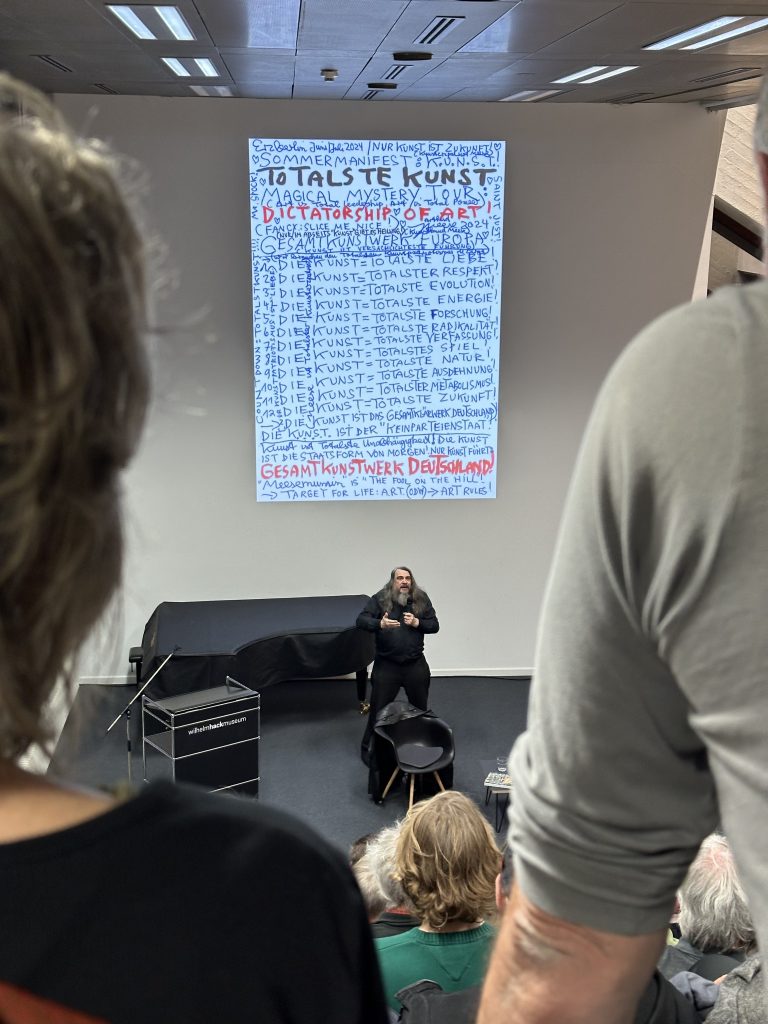 Erzberlin Juni/Juli 2024 / NUR KUNST IST ZUKUNFT!
SOMMERMANIFEST: K.U.N.S.T.!
TOTALSTE KUNST
MAGICAL MYSTERY TOUR:
DICTATORSHIP OF ART!
(FANCY: SLICE ME NICE!) 2024
GESAMTKUNSTWERK EUROPA
1. DIE KUNST = TOTALSTE LIEBE!
2. DIE KUNST = TOTALSTER RESPEKT!
3. DIE KUNST = TOTALSTE EVOLUTION!
4. DIE KUNST = TOTALSTE ENERGIE!
5. DIE KUNST = TOTALSTE FORSCHUNG!
6. DIE KUNST = TOTALSTE RADIKALITÄT!
7. DIE KUNST = TOTALSTE VERFASSUNG!
8. DIE KUNST = TOTALSTES SPIEL!
9. DIE KUNST = TOTALSTE NATUR!
10. DIE KUNST = TOTALSTE AUSDEHNUNG!
11. DIE KUNST = TOTALSTER METABOLISMUS!
12. DIE KUNST = TOTALSTE ZUKUNFT!
→ DIE KUNST IST DAS GESAMTKLÄRWERK DEUTSCHLAND!
DIE KUNST IST DER "KEINPARTEIENSTAAT!
Kunst ist Totalste Unabhängigkeit! DIE KUNST
IST DIE STAATSFORM VON MORGEN! NUR KUNST FÜHRT!
GESAMTKUNSTWERK DEUTSCHLAND!
"Meesemumin" IS "THE FOOL ON THE HILL!"
→ TARGET FOR LIFE: A.R.T. → ART RULES!
SAINT JUST!
wilhelmhackmuseum